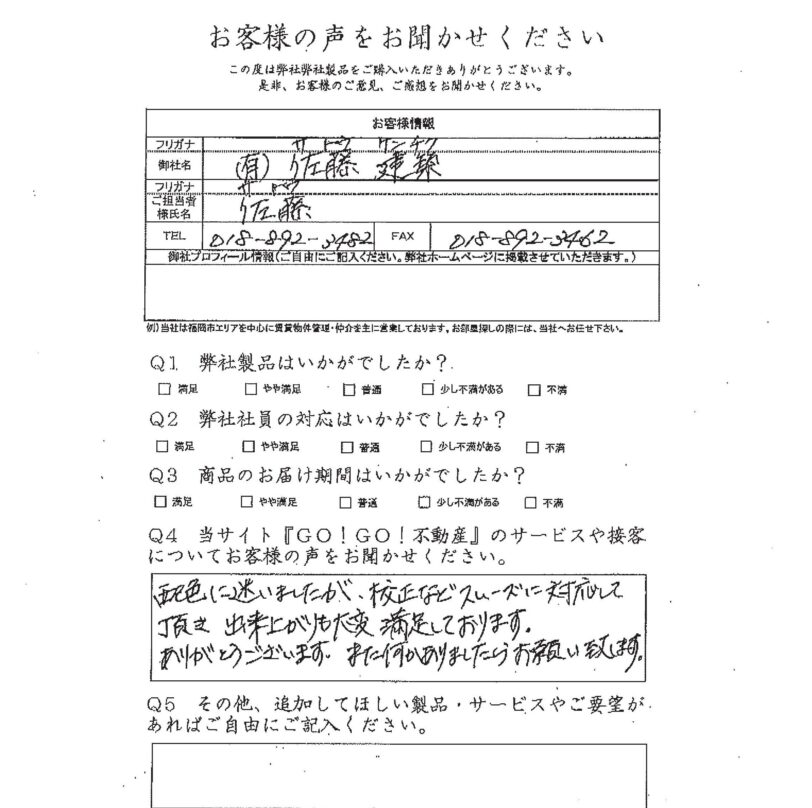 お客様の声をお聞かせください
この度は弊社弊社製品をご購入いただきありがとうございます。
是非、お客様のご意見、ご感想をお聞かせください。
お客様情報
フリガナ サトウ ケンチク
御社名 (有) 佐藤 建築
フリガナ サトウ
ご担当者様氏名 佐藤
TEL 018-892-3482 FAX 018-892-3462
御社プロフィール情報(ご自由にご記入ください。弊社ホームページに掲載させていただきます。)
例)当社は福岡市エリアを中心に賃貸物件管理・仲介を主に営業しております。お部屋探しの際には、当社へお任せ下さい。
Q1 弊社製品はいかがでしたか?
□ 満足 □ やや満足 □ 普通 □ 少し不満がある □ 不満
Q2 弊社社員の対応はいかがでしたか?
□ 満足 □ やや満足 □ 普通 □ 少し不満がある □ 不満
Q3 商品のお届け期間はいかがでしたか?
□ 満足 □ やや満足 □ 普通 □ 少し不満がある □ 不満
Q4 当サイト『GO!GO!不動産』のサービスや接客
についてお客様の声をお聞かせください。
配色に迷いましたが、校正などスムーズに対応して
頂き 出来上がりも大変 満足しております。
ありがとうございます。また何かありましたらお願い致します。
Q5 その他、追加してほしい製品・サービスやご要望が
あればご自由にご記入ください。